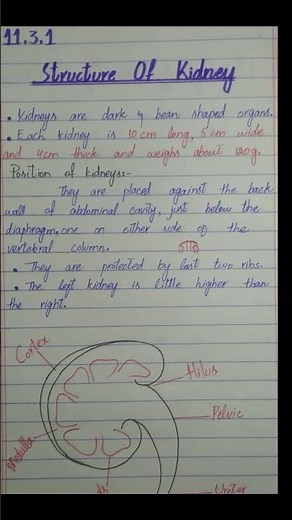 11.3.1
Structure Of Kidney
• Kidneys are dark & bean shaped organs.
• Each kidney is 10cm long, 5cm wide
and 4cm thick and weighs about 120g.
Position of kidneys:-
They are placed against the back
wall of abdominal cavity, just below the
diaphragm, one on either side of the
vertebral column.
• They are protected by last two ribs.
• The left kidney is little higher than
the right.
Cortex
Hilus
Pelvic
Medulla